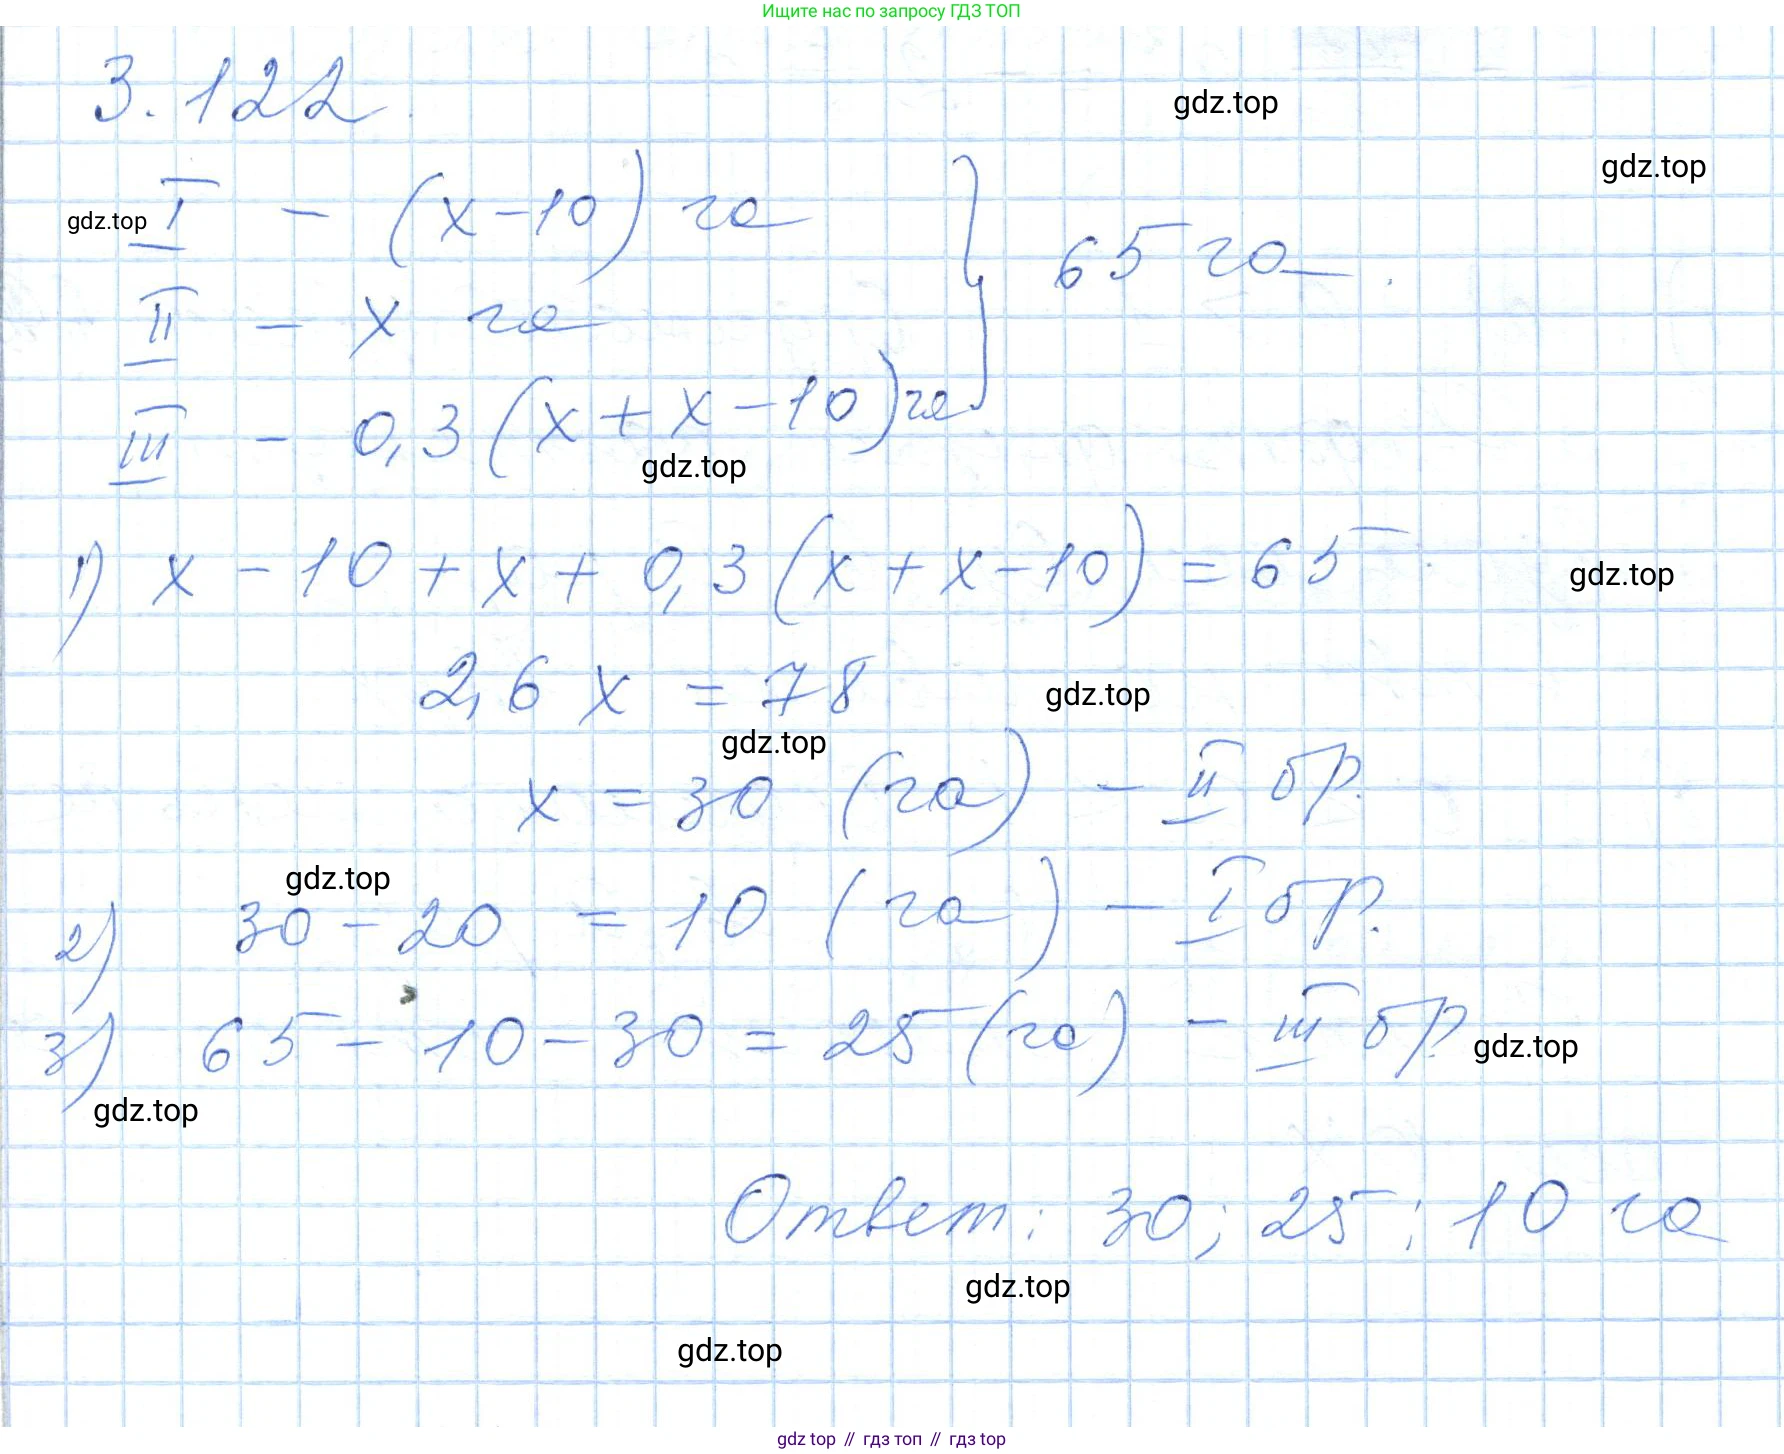 Ищите нас по запросу ГДЗ ТОП
3.122.
gdz.top
gdz.top
gdz.top
I - (x-10) га
65 га.
II - x га
III - 0,3(x+x-10) га
gdz.top
1) x-10+x+0,3(x+x-10)=65.
gdz.top
2,6x=78
gdz.top
gdz.top
x=30 (га) - II бр.
gdz.top
2) 30-20=10 (га) - I бр.
3) 65-10-30=25 (га) - III бр.
gdz.top
gdz.top
Ответ: 30; 25; 10 га
gdz.top
gdz.top
gdz top // гдз топ // гдз top